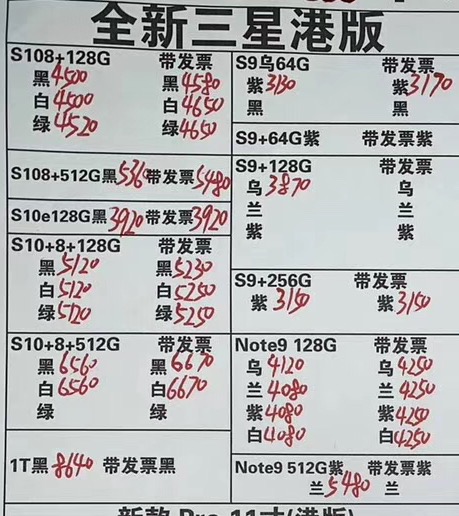 全新三星港版
S108+128G 带发票
黑4500 黑4580
白4500 白4650
绿4520 绿4650
S108+512G黑5360带发票5480
S10e128G黑3920带发票3920
S10+8+128G 带发票
黑5120 黑5230
白5120 白5250
绿5120 绿5250
S10+8+512G 带发票
黑6560 黑6670
白6560 白6670
绿 绿
1T黑8640 带发票黑
S9乌64G 带发票
紫3130 紫3170
黑 黑
S9+64G紫 带发票紫
S9+128G 带发票
乌3870 乌
兰 兰
紫 紫
S9+256G 带发票
紫3150 紫3150
Note9 128G 带发票
乌4120 乌4250
兰4080 兰4250
紫4080 紫4250
白4080 白4250
Note9 512G紫 带发票紫
兰5480 兰
新款 Pro 11寸(港版)